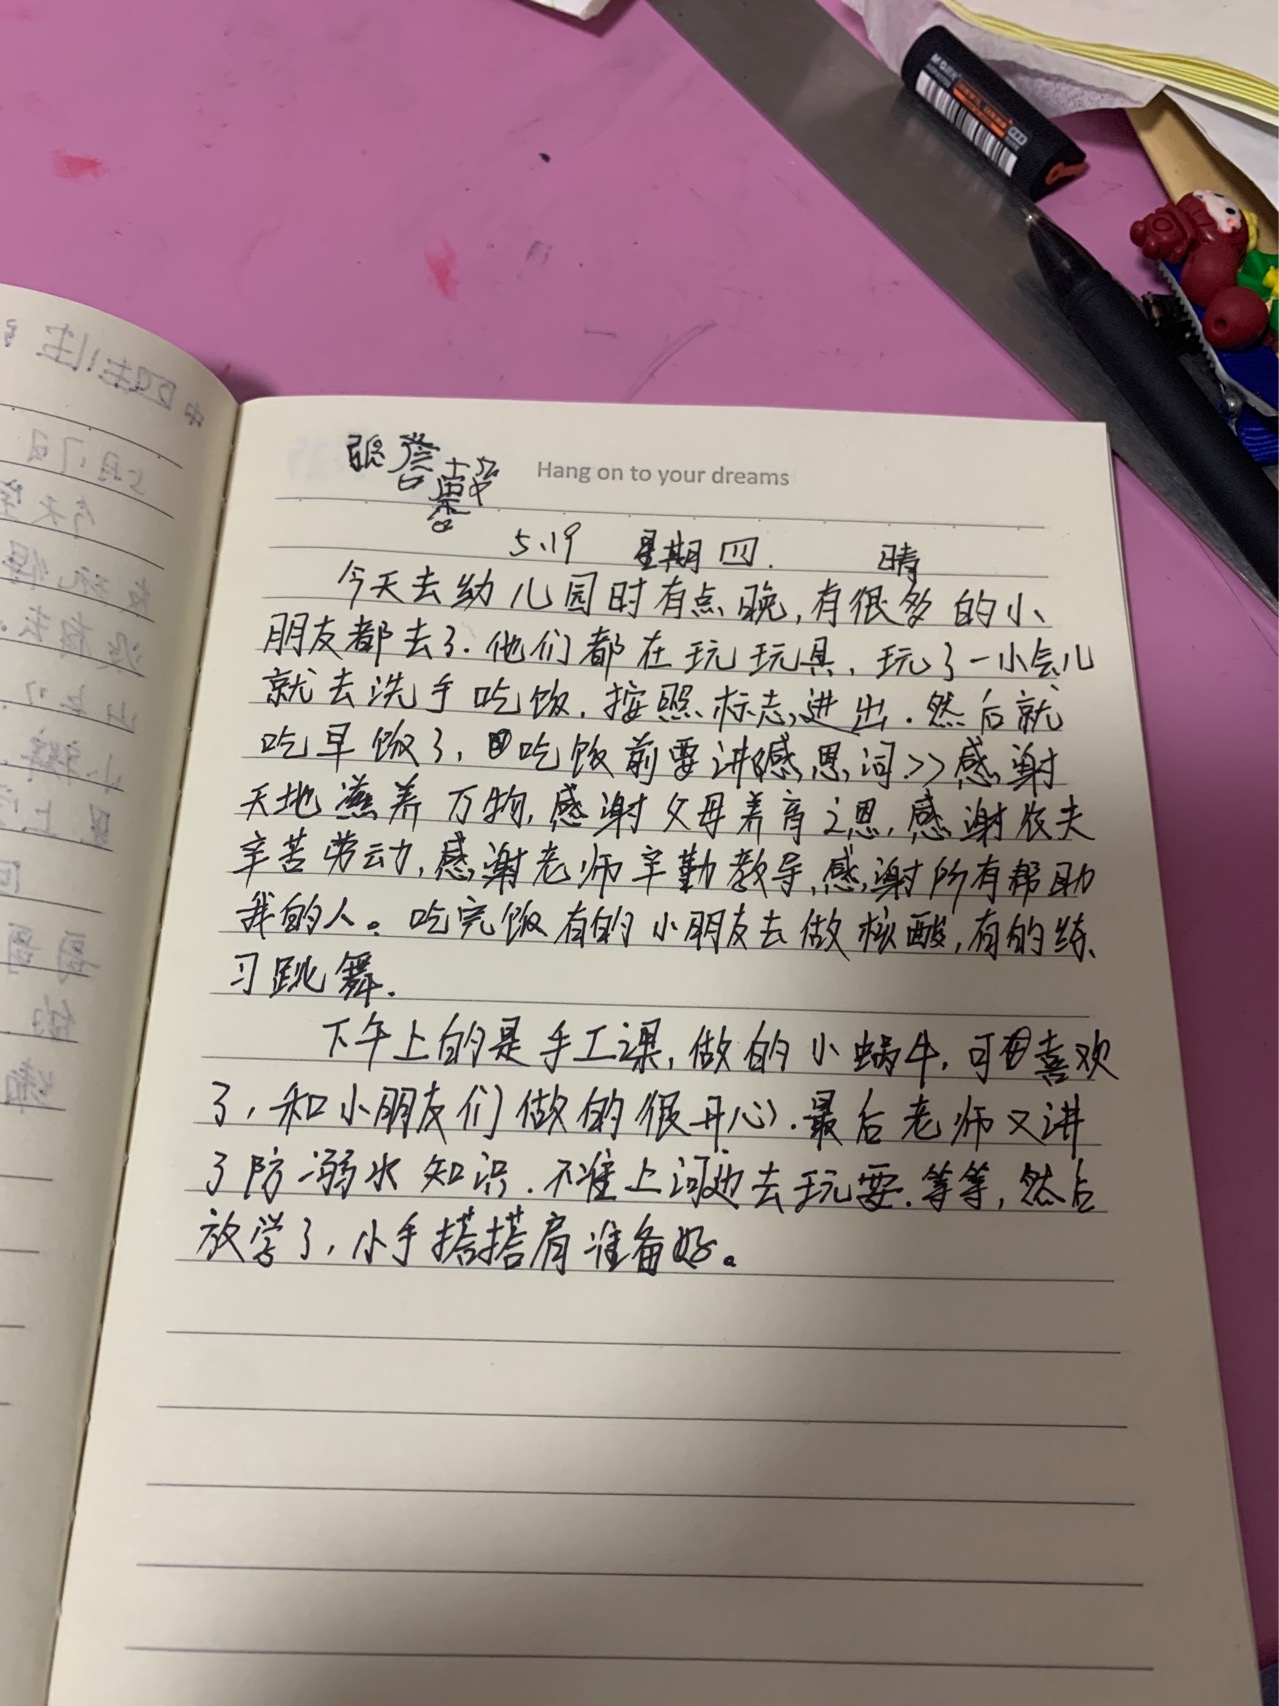 Hang on to your dreams
5.19 星期四. 晴
今天去幼儿园时有点晚,有很多的小
朋友都去了.他们都在玩玩具,玩了一小会儿
就去洗手吃饭.按照标志进出.然后就
吃早饭了,吃饭前要讲《感恩词>>感谢
天地滋养万物,感谢父母养育之恩,感谢农夫
辛苦劳动,感谢老师辛勤教导,感谢所有帮助
我的人。吃完饭有的小朋友去做核酸,有的练
习跳舞.
下午上的是手工课,做的小蜗牛,可喜欢
了,和小朋友们做的很开心.最后老师又讲
了防溺水知识.不准上河边去玩耍.等等,然后
放学了,小手搭搭肩准备好。